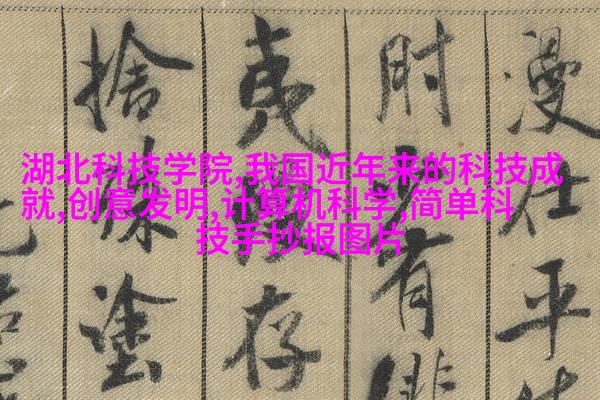 湖北科技学院,我国近年来的科技成
就,创意发明,计算机科学,简单科
技手抄报图片
漫仕平
时有
夷存
捨塗